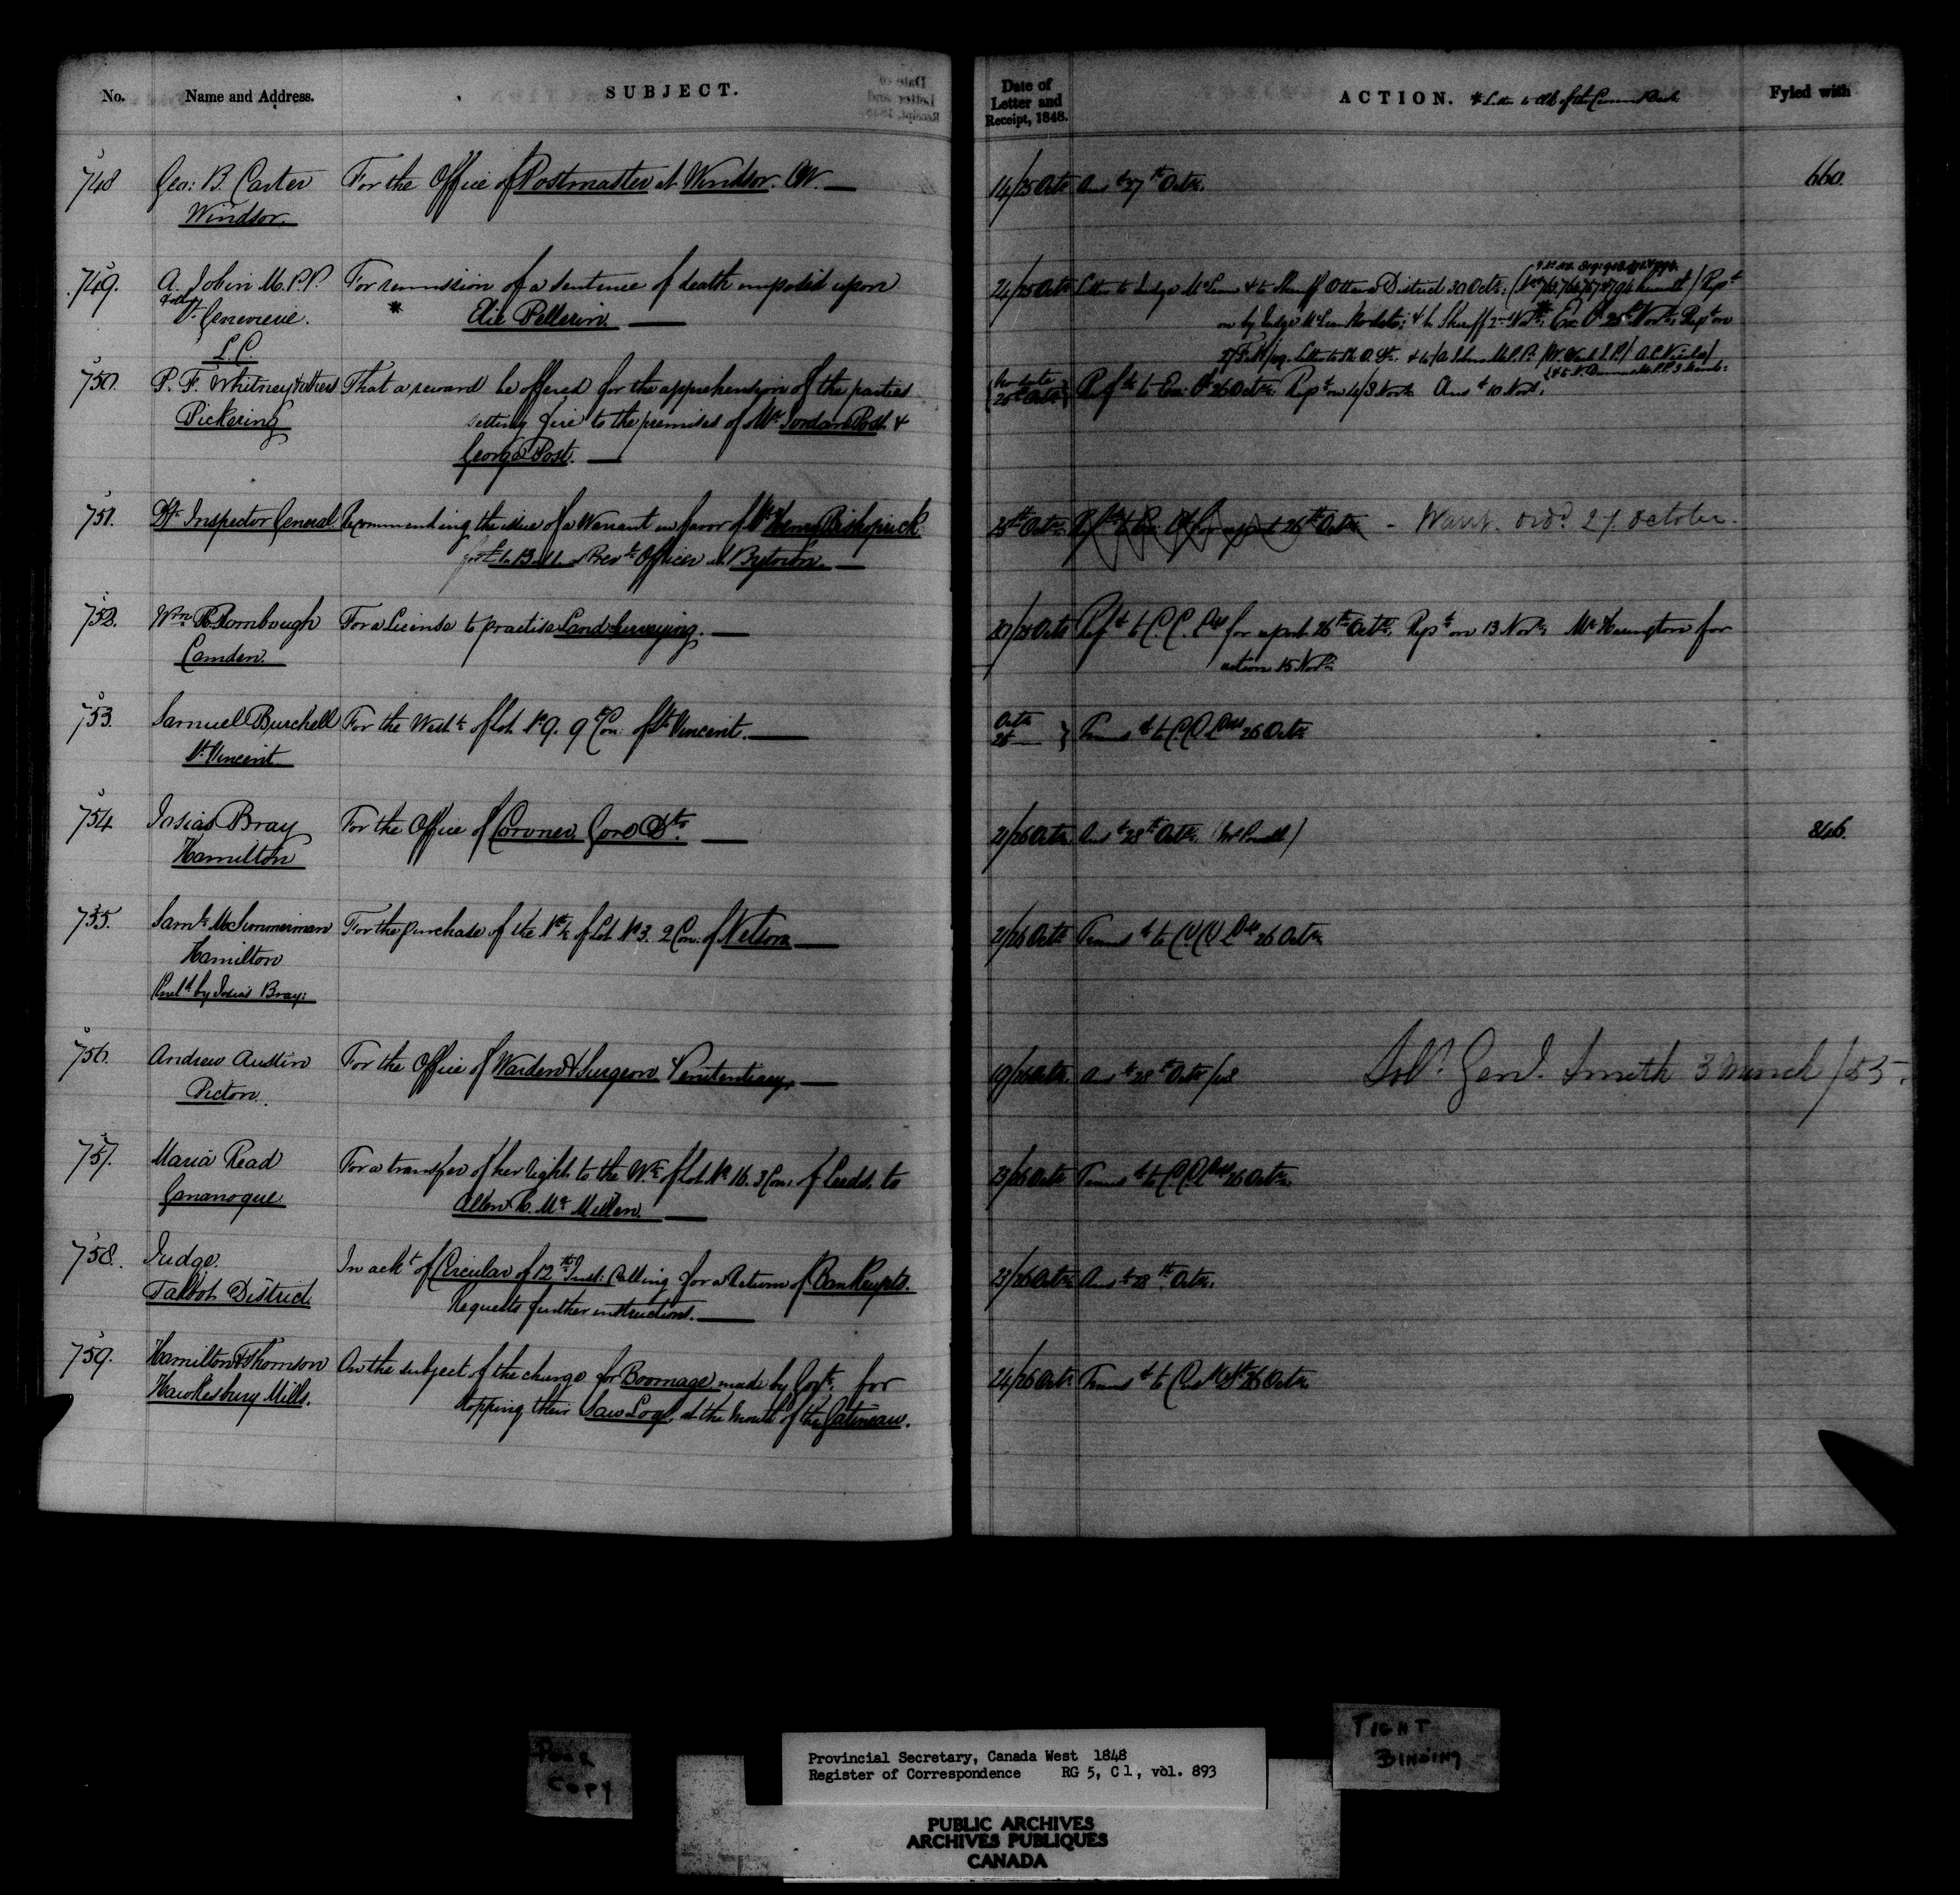 No. Name and Address. SUBJECT. Date of Letter and Receipt, 1848. ACTION. Fyled with
748 Geo: B. Carter For the Office of Postmaster at Windsor. CW. 14/25 Octr Ansd 27th Octr. 660.
Windsor.
749. A. Jobin M.P.P. For remission of a sentence of death imposed upon 24/25 Octr Letter to Judge McLean & to Sheriff Ottawa District 30 Octr.
St. Genevieve. * Elie Pellerin.
L.C.
750. P. F. Whitney & others That a reward be offered for the apprehension of the parties No date 25th Octr Refd to Exe: Cl 26 Octr. Repd on 4/8 Novr. Ansd 10 Novr.
Pickering setting fire to the premises of Mr. Jordan Post &
George Post.
751. Dy. Inspector General Recommending the issue of a Warrant in favor of Mr. Henry 25th Octr. - Warrt. ord. 27. October.
Officer at Bytown.
752. Wm. For a License to practise Land Surveying. Refd to C. C. L for report 26th Octr. Repd on 13 Novr. Mr Harington for
Camden. action 15 Novr
753. Samuel Burchell For the West ½ of Lot No 9. 9 Con: of St. Vincent. Octr 26 Transd to C C L Dept 26 Octr
St. Vincent
754 Josias Bray For the Office of Coroner Gore Dt. 21/26 Octr. Ansd 28th Octr. 846.
Hamilton
755. Saml. McSimmerman For the purchase of the of Lot No 3. 2 Con: of Nelson 21/26 Octr Transd to C C L Dept 26 Octr.
Hamilton
by Josias Bray:
756. Andrew Austin For the Office of Warden & Surgeon Penitentiary. 19/26 Octr. Ansd 28th Octr Solr. Genl. Smith 3 March /55.
Picton.
757. Maria Read For a transfer of her right to the W. ½ of Lot No 16. 3 Con. of Leeds, to 23/26 Octr Transd to C C L Dept 26 Octr.
Gananoque Allen R. Mc Millen.
758. Judge. In ackt of Circular of 12th Inst: Calling for a Return of Bankrupts. 23/26 Octr. Ansd 28th Octr.
Talbot District Requests further instructions.
759. Hamilton & Thomson On the subject of the charge for Boomage made by Govt. for 24/26 Octr Transd to 26 Octr
Hawkesbury Mills. stopping their Saw Logs, at the Mouth of the Gatineau.
Poor
Copy
Tight
Binding
Provincial Secretary, Canada West 1848
Register of Correspondence RG 5, C 1, vol. 893
PUBLIC ARCHIVES
ARCHIVES PUBLIQUES
CANADA